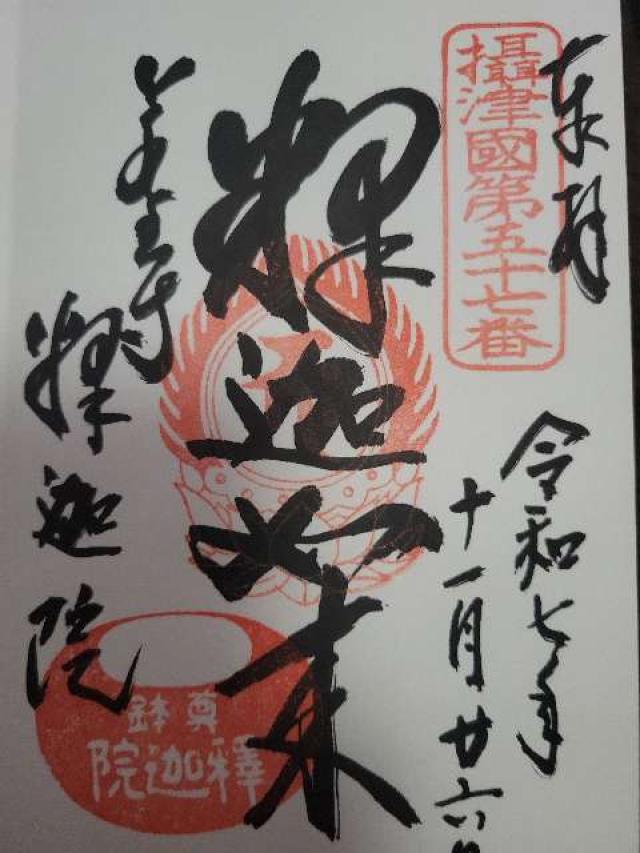 奉拝
攝津國第五十七番
令和七年
十一月廿六日
釋迦如来
金寺
釋迦院
尊鉢
釋迦院